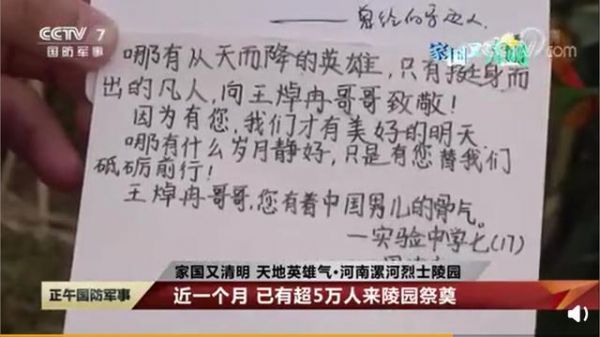 CCTV 7
国防军事
家国又清明
.com
哪有从天而降的英雄,只有挺身而
出的凡人,向王焯冉哥哥致敬!
因为有您,我们才有美好的明天
哪有什么岁月静好,只是有您替我们
砥砺前行!
王焯冉哥哥,您有着中国男儿的骨气。
—实验中学七(17)
家国又清明 天地英雄气·河南漯河烈士陵园
正午国防军事
近一个月 已有超5万人来陵园祭奠